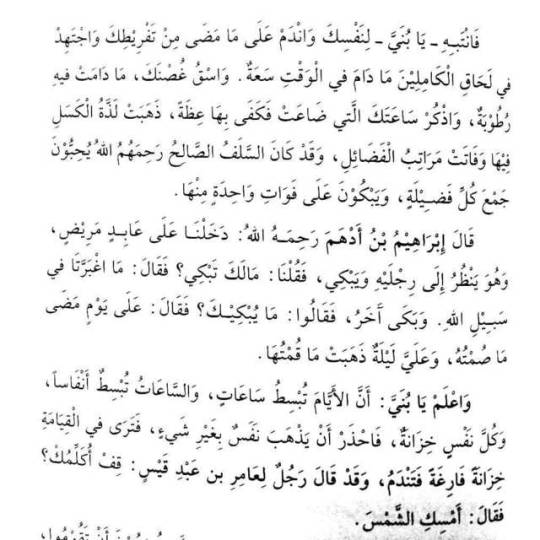 فَانْتَبِهِ - يَا بُنَيَّ - لِنَفْسِكَ وَانْدَمْ عَلَى مَا مَضَى مِنْ تَفْرِيْطِكَ وَاجْتَهِدْ
في لَحَاقِ الْكَامِلِيْنَ مَا دَامَ في الْوَقْتِ سَعَةٌ . وَاسْقِ غُصْنَكَ، مَا دَامَتْ فيهِ
رُطُوْبَةٌ، وَاذْكُرْ سَاعَتَكَ الَّتي ضَاعَتْ فَكَفَى بِهَا عِظَةً، ذَهَبَتْ لَذَّةُ الْكَسَلِ
فِيْهَا وَفَاتَتْ مَرَاتِبُ الْفَضَائِلِ، وَقَدْ كَانَ السَّلَفُ الصَّالِحُ رَحِمَهُمُ اللهُ يُحِبُّوْنَ
جَمْعَ كُلِّ فَضِيْلَةٍ، وَيَبْكُوْنَ عَلَى فَوَاتِ وَاحِدَةٍ مِنْهَا.
قَالَ إِبْرَاهِيْمُ بْنُ أَدْهَمَ رَحِمَهُ اللهُ: دَخَلْنَا عَلَى عَابِدٍ مَرِيْضٍ،
وَهُوَ يَنْظُرُ إِلَى رِجْلَيْهِ وَيَبْكِي، فَقُلْنَا: مَالَكَ تَبْكِي؟ فَقَالَ: مَا اغْبَرَّتَا في
سَبِيْلِ اللهِ. وَبَكَى آخَرُ، فَقَالُوا: مَا يُبْكِيْكَ؟ فَقَالَ: عَلَى يَوْمٍ مَضَى
مَا صُمْتُهُ، وَعَلَيَّ لَيْلَةٌ ذَهَبَتْ مَا قُمْتُهَا.
وَاعْلَمْ يَا بُنَيَّ: أَنَّ الأَيَّامَ تُبْسِطُ سَاعَاتٍ، وَالسَّاعَاتُ تُبْسِطُ أَنْفَاساً،
وَكُلَّ نَفْسٍ خِزَانَةٌ، فَاحْذَرْ أَنْ يَذْهَبَ نَفَسٌ بِغَيْرِ شَيْءٍ، فَتَرَى في الْقِيَامَةِ
خِزَانَةً فَارِغَةً فَتَنْدَمُ، وَقَدْ قَالَ رَجُلٌ لِعَامِرِ بن عَبْدِ قَيْسٍ: قِفْ أُكَلِّمُكْ؟
فَقَالَ: أَمْسِكِ الشَّمْسَ.